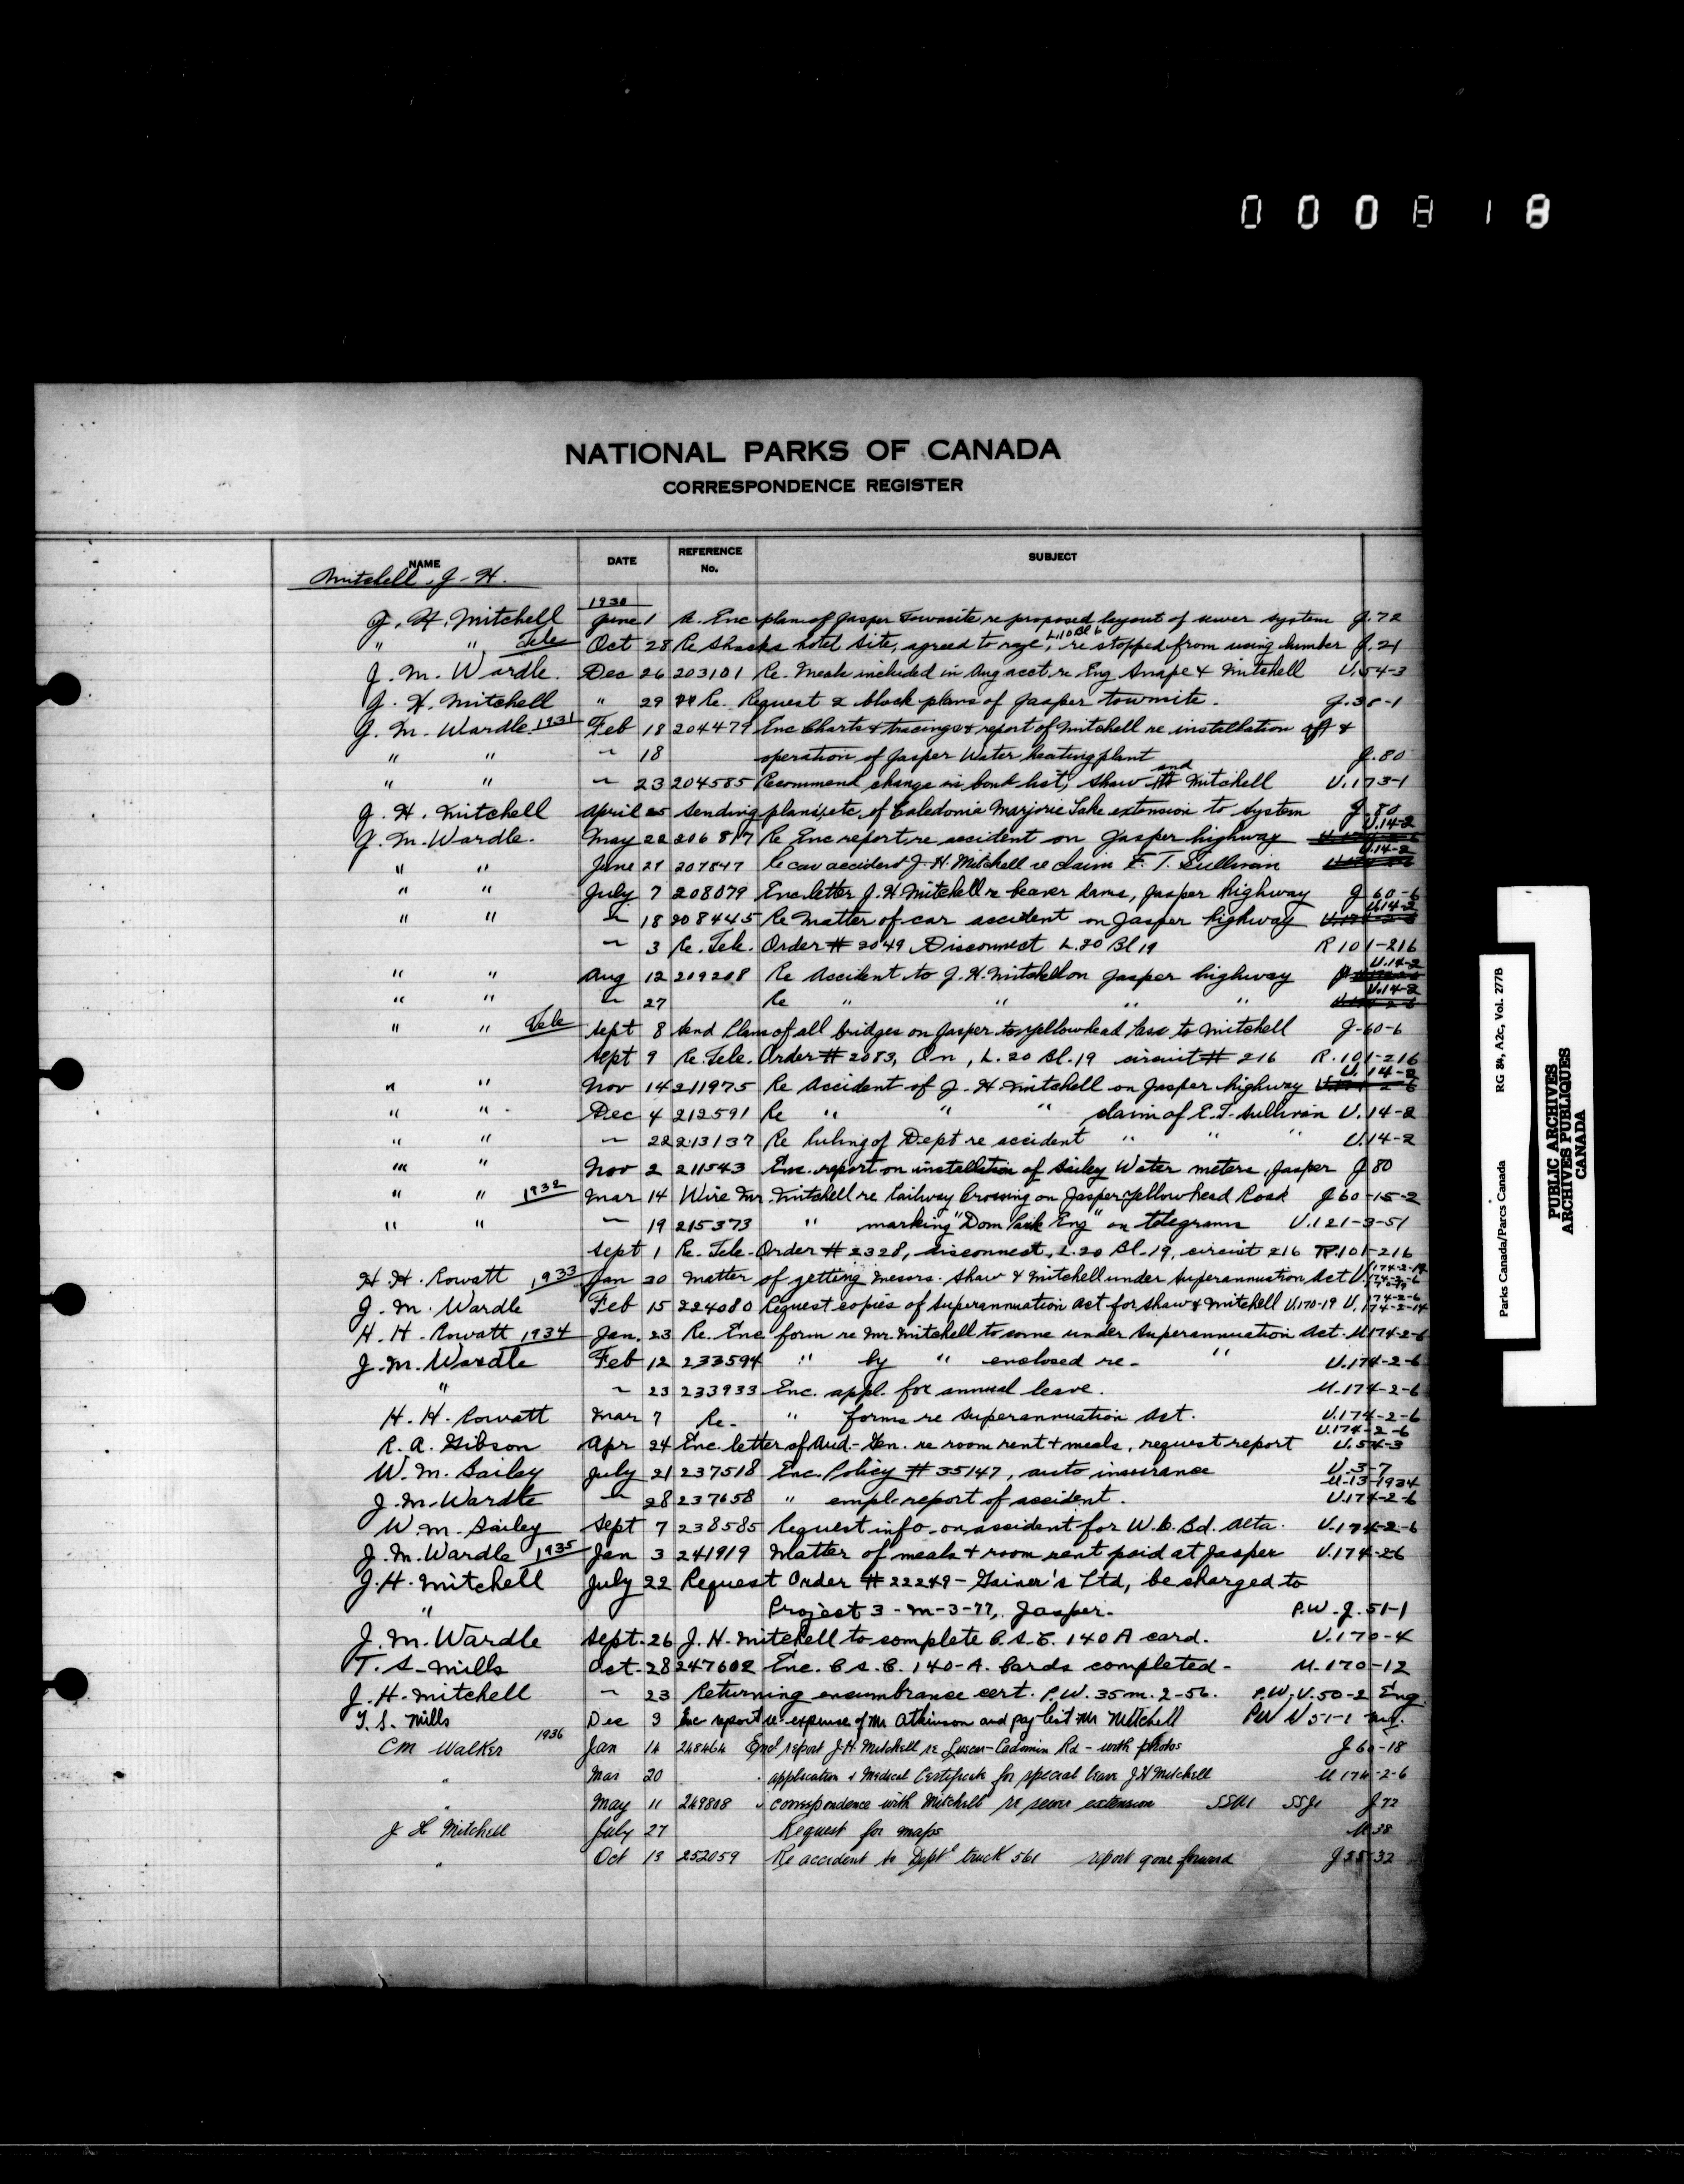 000818
NATIONAL PARKS OF CANADA
CORRESPONDENCE REGISTER
NAME DATE REFERENCE No. SUBJECT
Mitchell, J-H.
1930
J. H. Mitchell June 1 A. Enc plan of Jasper Townsite, re proposed layout of sewer system J.72
" " Tele Oct 28 Re Shacks hotel site, agreed to raze, L.10 Bl 6 re stopped from using lumber J.21
J. M. Wardle. Dec 26 203101 Re. Meals included in Aug acct. re Eng Snape & Mitchell U.54-3
J. H. Mitchell " 29 Re. Request 2 block plans of Jasper townsite. J.38-1
J. M. Wardle. 1931 Feb 18 204479 Enc Charts & tracings & report of Mitchell re installation &
" " " 18 operation of Jasper Water heating plant J.80
" " " 23 204585 Recommend change in bond list, Shaw and Mitchell U.173-1
J. H. Mitchell April 25 Sending plans, etc, of Caledonia Marjorie Lake extension to system J.80
J. M. Wardle. May 22 206817 Re Enc report re accident on Jasper highway U.14-2
" " June 27 207847 Re car accident J. H. Mitchell re claim E. T. Sullivan U.14-2
" " July 7 208079 Enc letter J. H. Mitchell re beaver dams, Jasper highway J 60-6
" " " 18 208445 Re Matter of car accident on Jasper highway U.14-2
" 3 Re. Tele. Order # 2049 Disconnect L.20 Bl 19 R 101-216
" " Aug 12 209208 Re Accident to J. H. Mitchell on Jasper highway U.14-2
" " " 27 Re " " " " U.14-2
" " Tele Sept 8 Send Plans of all bridges on Jasper to Yellowhead Pass to Mitchell J-60-6
Sept 9 Re. Tele. Order # 2083, On, L. 20 Bl. 19 circuit # 216 R. 101-216
" " Nov 14 211975 Re Accident of J. H. Mitchell on Jasper highway U.14-2
" " Dec 4 212591 Re " " " claim of E. T. Sullivan U.14-2
" " " 22 213137 Re Ruling of Dept re accident " " " U.14-2
" " Nov 2 211543 Enc. report on installation of Bailey Water meters, Jasper J 80
" " 1932 Mar 14 Wire Mr. Mitchell re Railway Crossing on Jasper Yellowhead Road J 60-15-2
" " " 19 215373 " marking "Dom Park Eng" on telegrams U.121-3-51
Sept 1 Re. Tele-Order # 2328, disconnect, L.20 Bl.19, circuit 216 R.101-216
H. H. Rowatt 1933 Jan 20 Matter of getting Messrs. Shaw & Mitchell under Superannuation Act U.174-2-14 174-2-6
J. M. Wardle Feb 15 224080 Request copies of Superannuation Act for Shaw & Mitchell U.170-19 U.174-2-6 174-2-14
H. H. Rowatt 1934 Jan. 23 Re. Enc form re Mr. Mitchell to come under Superannuation Act. U 174-2-6
J. M. Wardle Feb 12 233594 " by " enclosed re- " U.174-2-6
" " 23 233933 Enc. appl. for annual leave. U.174-2-6
H. H. Rowatt Mar 7 Re- " forms re Superannuation Act. U.174-2-6
R. A. Gibson Apr 24 Enc. letter of Aud.-Gen. re room rent + meals, request report U.174-2-6 U.54-3
W. M. Bailey July 21 237518 Enc. Policy # 35147, auto insurance U.3-7 U-13-1934
J. M. Wardle " 28 237658 " empl. report of accident. U.174-2-6
W. M. Bailey Sept 7 238585 Request info. on accident for W. C. Bd. Alta. U.174-2-6
J. M. Wardle 1935 Jan 3 241919 Matter of meals + room rent paid at Jasper U.174-26
J. H. Mitchell July 22 Request Order # 22249 - Gainer's Ltd, be charged to
" Project 3-M-3-77, Jasper. P.W. J. 51-1
J. M. Wardle Sept. 26 J. H. Mitchell to complete C.S.C. 140A card. U.170-4
T. S. Mills Oct. 28 247602 Enc. C.S.C. 140-A. Cards completed- U.170-12
J. H. Mitchell " 23 Returning encumbrance cert. P.W. 35 m. 2-56. P.W, U.50-2 Eng.
T. S. Mills Dec 3 Enc report re expense of Mr Atkinson and pay list Mr Mitchell PW U 51-1
CM Walker 1936 Jan 14 248464 Encl report J.H. Mitchell re Luscar-Cadomin Rd - with photos J 60-18
" Mar 20 " application & Medical Certificate for special leave J H Mitchell U 174-2-6
" May 11 249808 " correspondence with Mitchell re sewer extension J 72
J H Mitchell July 27 Request for maps U 38
" Oct 13 252059 Re accident to Dept'l truck 561 report gone forward J 25-32
Parks Canada/Parcs Canada RG 84, A2c, Vol. 2778
PUBLIC ARCHIVES
ARCHIVES PUBLIQUES
CANADA